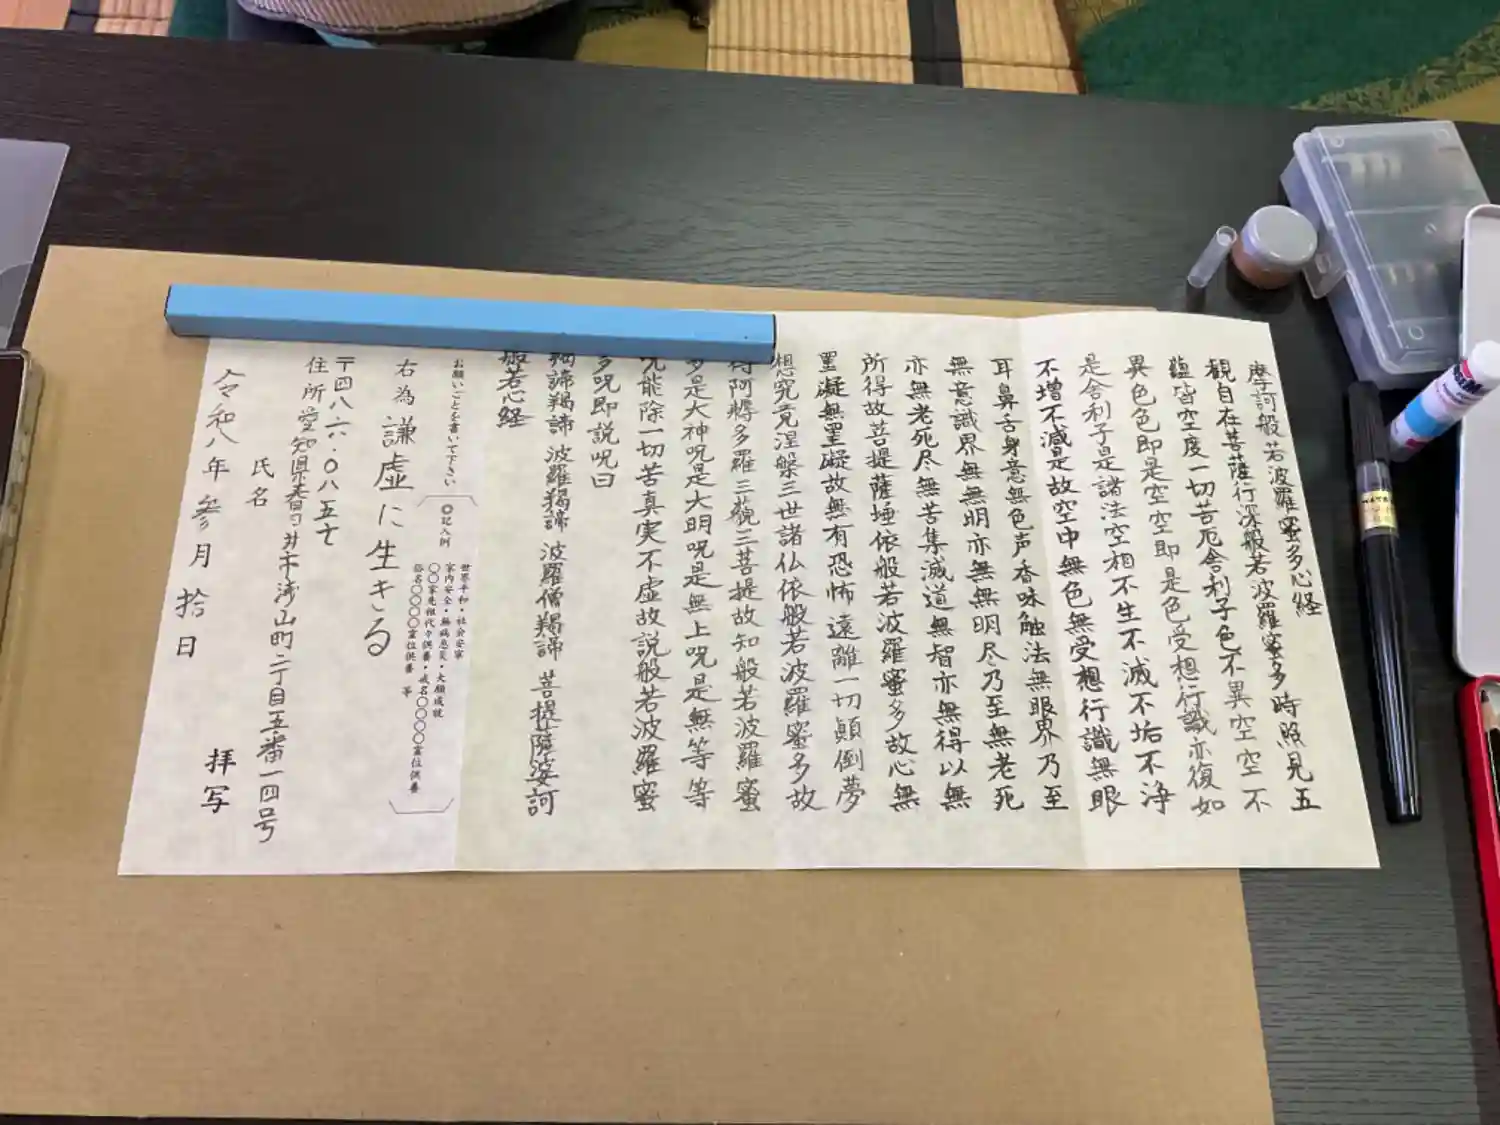 摩訶般若波羅蜜多心経
観自在菩薩行深般若波羅蜜多時照見五
蘊皆空度一切苦厄舎利子色不異空空不
異色色即是空空即是色受想行識亦復如
是舎利子是諸法空相不生不滅不垢不浄
不増不減是故空中無色無受想行識無眼
耳鼻舌身意無色声香味触法無眼界乃至
無意識界無無明亦無無明尽乃至無老死
亦無老死尽無苦集滅道無智亦無得以無
所得故菩提薩埵依般若波羅蜜多故心無
罣礙無罣礙故無有恐怖遠離一切顛倒夢
想究竟涅槃三世諸仏依般若波羅蜜多故
得阿耨多羅三藐三菩提故知般若波羅蜜
多是大神呪是大明呪是無上呪是無等等
呪能除一切苦真実不虚故説般若波羅蜜
多呪即説呪曰
羯諦羯諦 波羅羯諦 波羅僧羯諦 菩提薩婆訶
般若心経
お願いごとを書いて下さい
◎記入例
世界平和・社会安寧
家内安全・無病息災・大願成就
〇〇家先祖代々供養・戒名〇〇〇〇霊位供養
俗名〇〇〇〇霊位供養 等
右為 謙虚に生きる
〒四八六・〇八五七
住所 愛知県春日井市 山町二丁目五番一四号
氏名
令和八年 参月 拾日
拝写